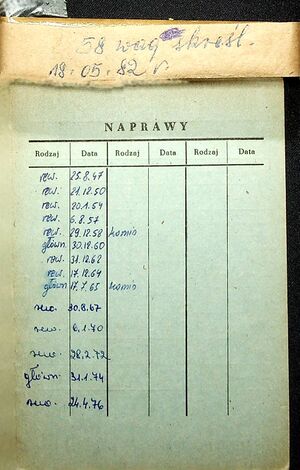 58 wag skreśl.
18.05.82 r.
NAPRAWY
Rodzaj Data Rodzaj Data Rodzaj Data
rew. 25.8.47
rew. 21.12.50
rew. 20.1.54
rew. 6.8.57
rew. 29.12.58
główn. 30.12.60
rew. 31.12.62
rew. 17.12.64
główn 17.7.65
30.8.67
6.1.70
28.2.72
główn. 31.1.74
24.4.76